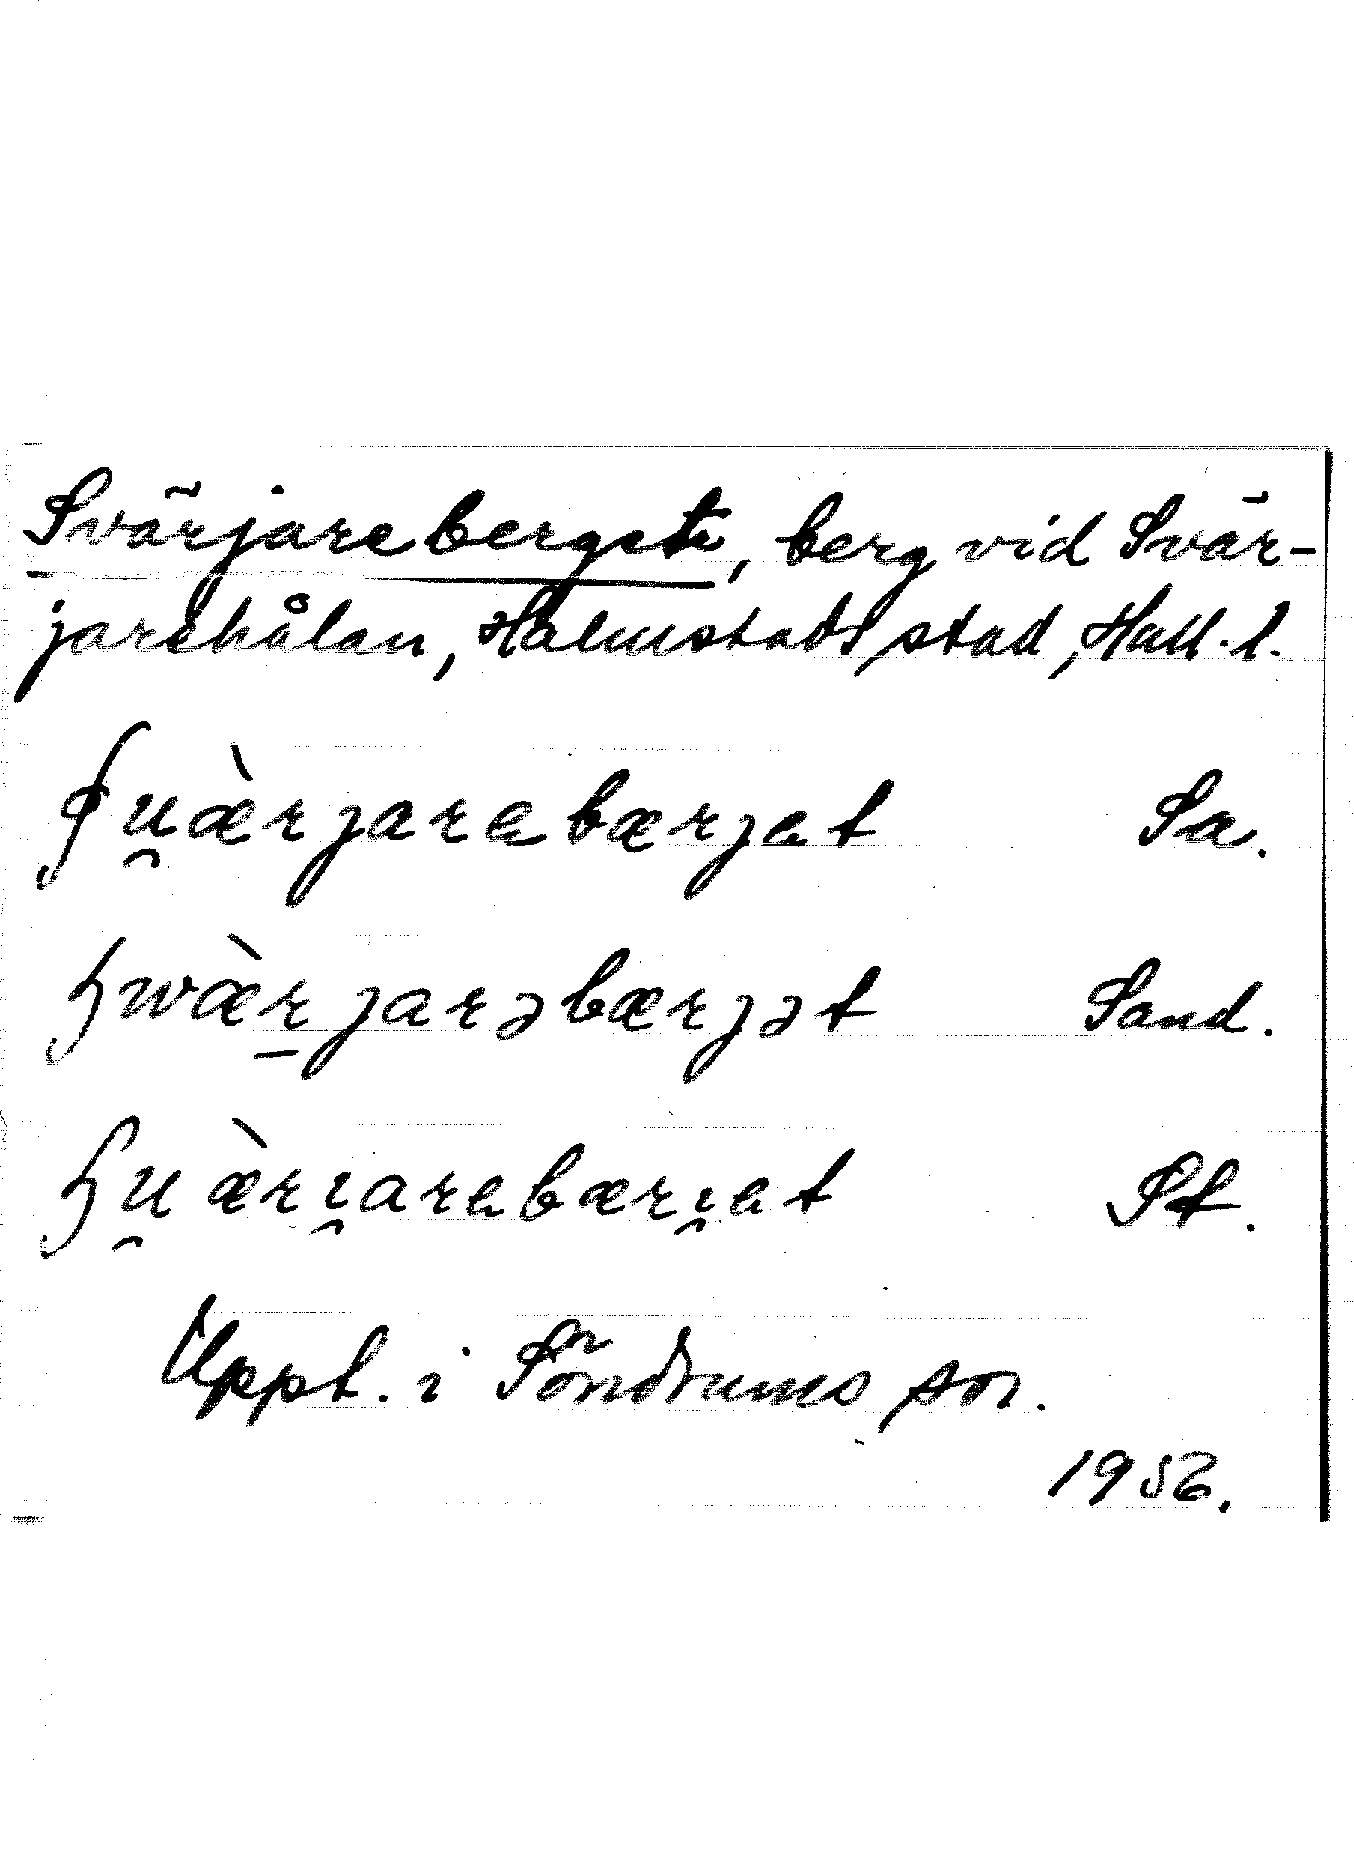 Svärjareberget, berg vid Svär-
jarehålan, Halmstads stad, Hall. l.
ʂu̯æ̀rjarebærjet Sa.
ʂwæ̀ṟjarəbærjət Sand.
ʂu̯æ̀ri̯arebæri̯et St.
Uppt. i Söndrums sn.
1956.